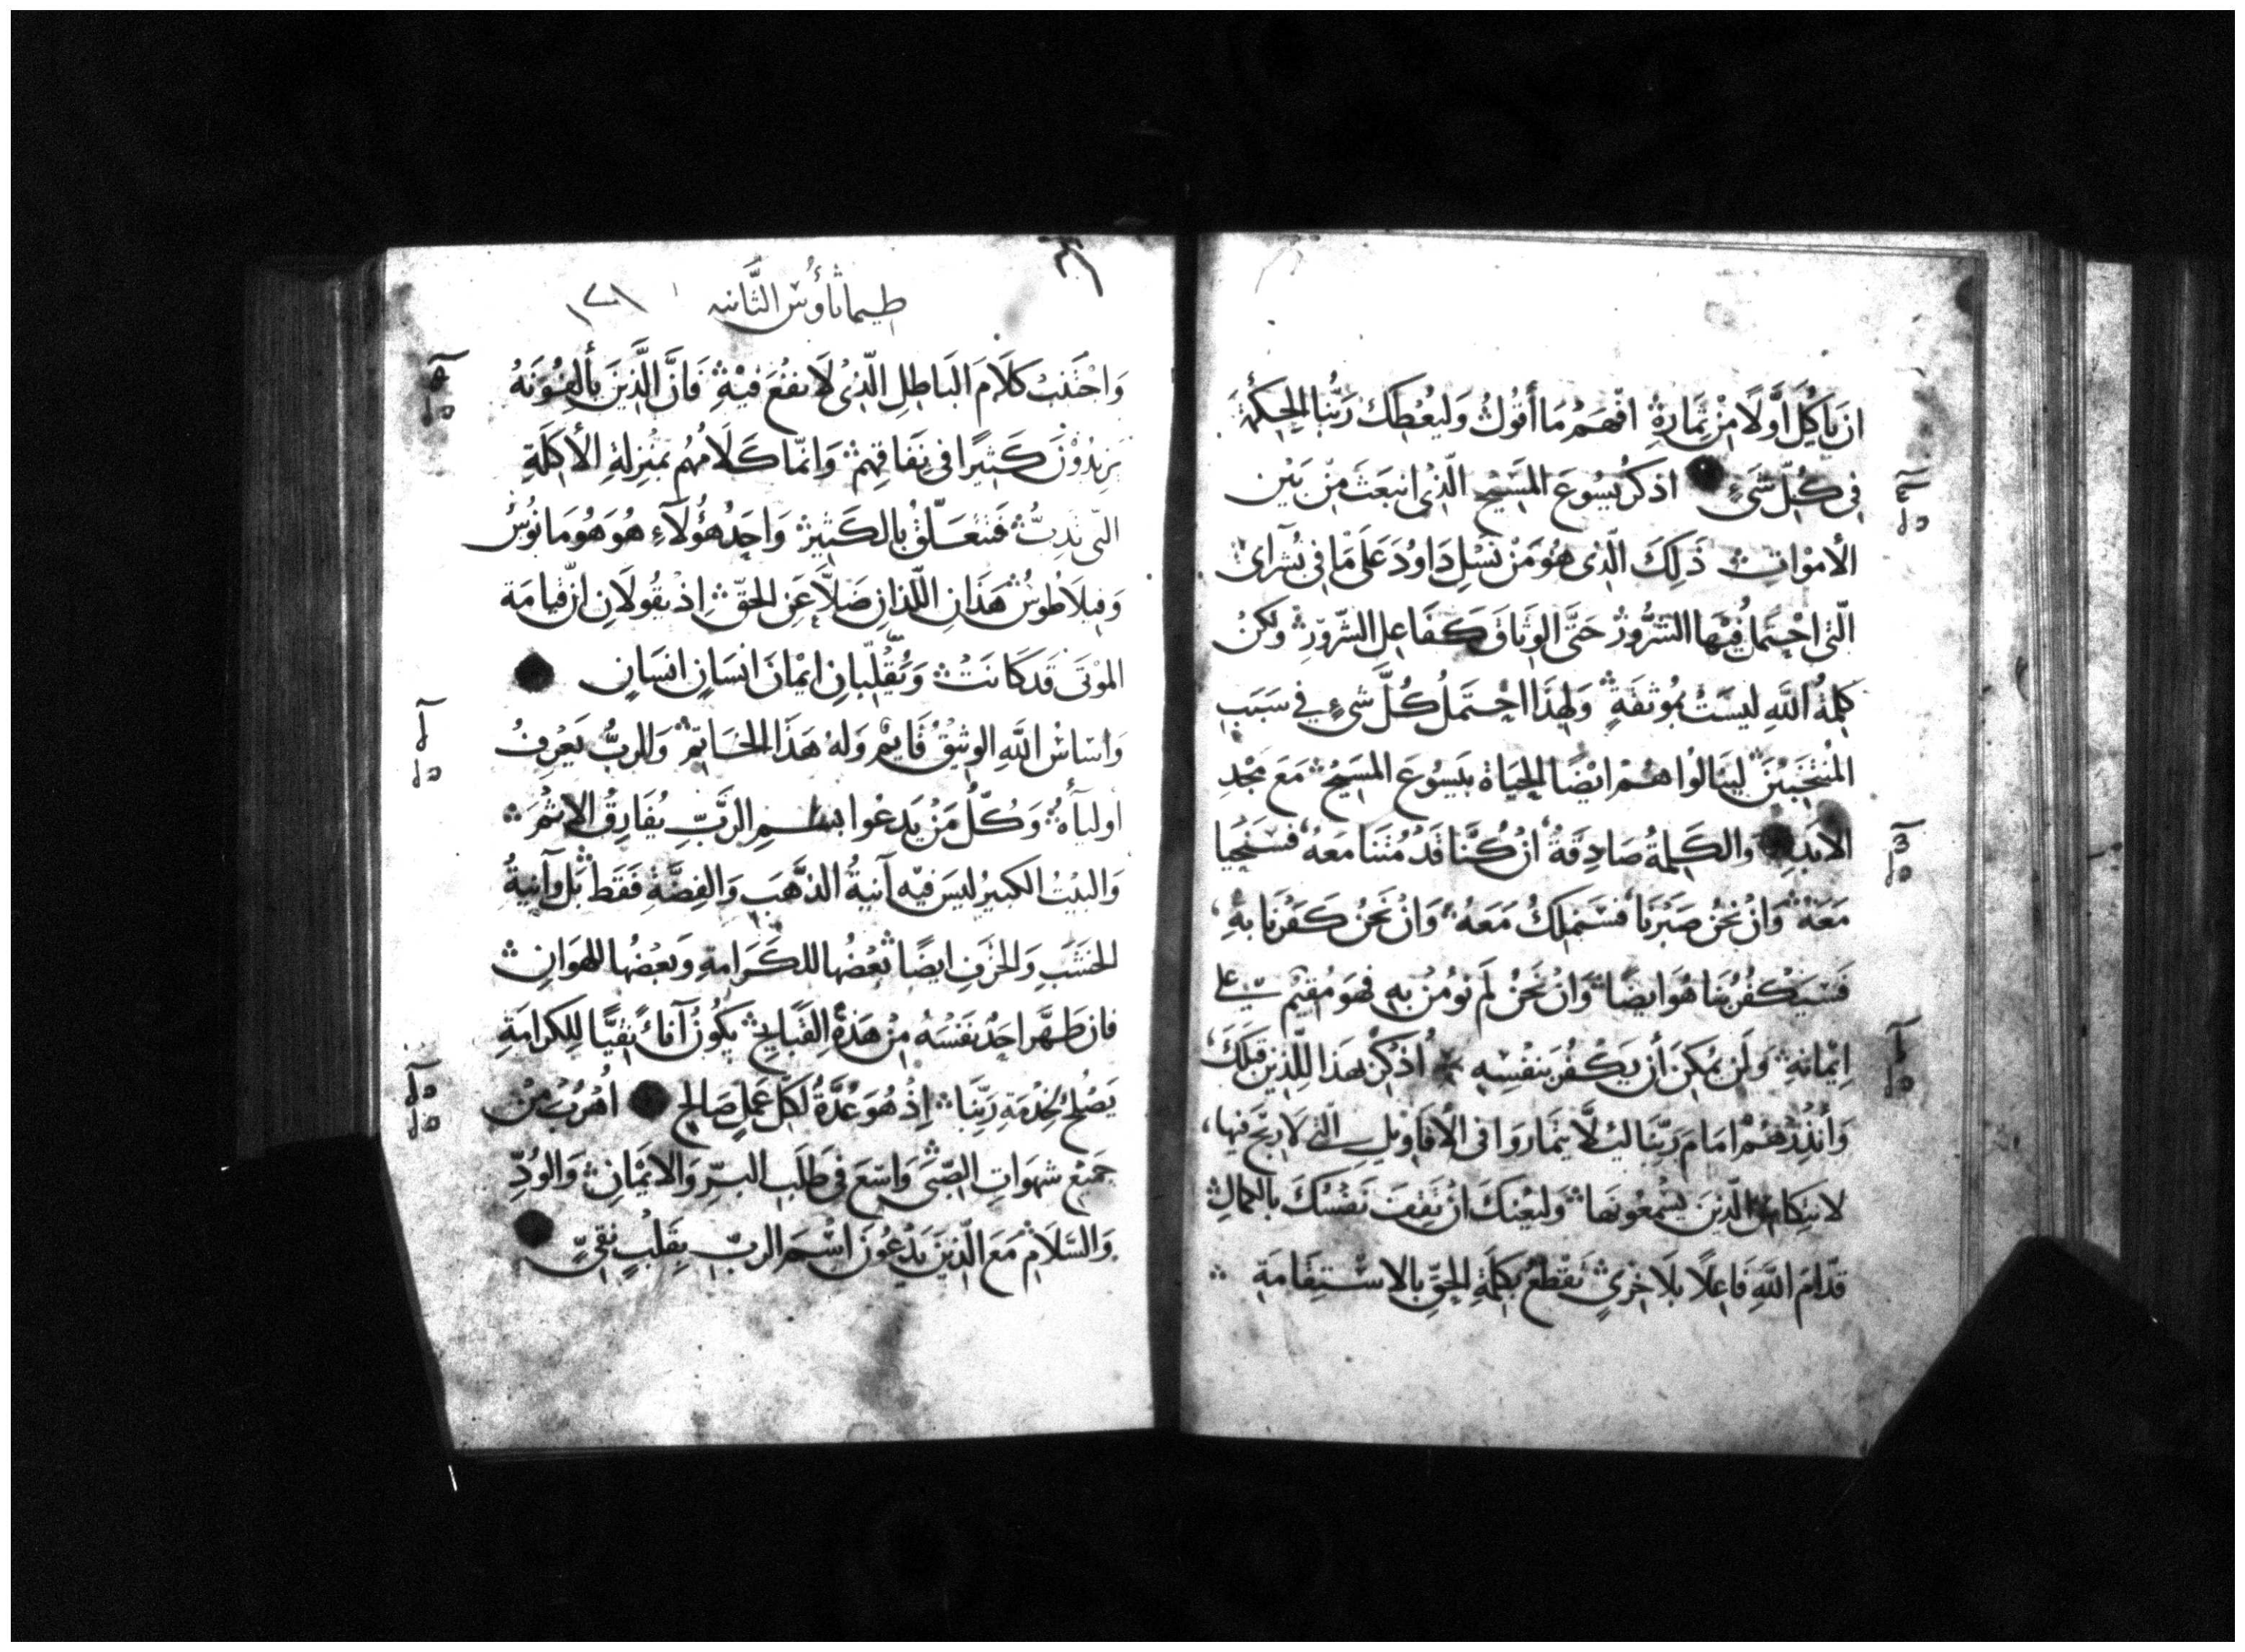 ان يأكل أوَّلًا مِنْ ثِمَارِهِ افْهَمْ مَا أقُولُ وَلِيُعْطِكَ رَبُّنَا الحِكْمَةَ
في كُلِّ شَيءٍ اذكُرْ يَسُوعَ المَسِيْحِ الّذِي انبَعَثَ مِنْ بَيْنِ
الأمْوَاتِ ذَلِكَ الّذي هُوَ مَنْ نَسْلِ دَاودَ عَلَى مَا في بُشرَايَ
الّتي احْتمِل فيْهَا الشُّرُورُ حَتَّى الوَثاقَ كَفَاعِلِ الشّرّورِ ولَكنْ
كلِمَةُ اللهِ لَيسَتْ بمُوثَقَةٍ وَلِهَذَا احْتَمِلُ كُلَّ شيءٍ في سَبَبِ
المُنْتَخَبينَ لينَالُوا هُمْ ايْضًا الحَيَاةَ بيَسُوعَ المَسيْحِ مَعَ مَجْدِ
الأبَدِ وَالكَلِمَةُ صَادِقَةٌ انْ كُنَّا قَدْ مُتنَا مَعَهُ فسَنَحْيَا
مَعَهُ وَانْ نَحْنُ صَبَرْنَا فسَنملِكُ مَعَهُ وَانْ نَحْنُ كَفَرْنَا بِهِ
فَسَيَكْفُرُ بنَا هُوَ ايضًا وَانْ نَحْنُ لَم نُومُنْ بِهِ فهوَ مُقيْم على
ايْمَانِهِ وَلَن يُمكِنَ أن يَكْفُرَ بنَفْسِهِ اُذكُرْ بهَذا الّلذِينَ قبَلَكَ
وَأنْذِرْهُمْ امَامَ رَبِّنَا ليلَّا يتمارَوا في الأقَاويلِ الّتي لَا ربْحَ فيها
الّذينَ يَسْمَعُونهَا وَليُعينكَ انْ تقِفَ نَفْسُكَ بالكمالِ
قدّامَ اللهِ فَاعِلًا بلَا خِزْيٍ تَقْطعُ بكلِمَةِ الحَقِّ بالاسْتِقَامَةِ
طيماثاؤس الثَّانيه
وَاجْتَنِبْ كلَامَ البَاطِلِ الّذي لَا نفْعَ فيْهِ فَانَّ الَّذِينَ يألفُونَهُ
يَزيدُوْنَ كَثِيرًا في نِفَاقِهِمْ وَانمّا كَلَامُهُم بمَنْزلةِ الأكِلَةِ
الّتي تَدِبُّ فَتتعَلّقُ بالكَثِيرْ وَاحَدُ هؤُلَآءِ هُوَ هُومَانوُسُ
وَفيلاطُوسُ هَذَانِ اللّذانِ ضَلَّا عَنِ الحَقِّ اِذ يقُولَانِ انّ قيَامَة
المَوْتَى قَد كَانَتْ وَيُقَلّبَانِ ايْمَانَ انْسَانٍ انسَانٍ
وَاسَاسُ اللهِ الوَثِيْقُ قَايمْ وَلهُ هَذَا الخَاتِمْ وَالربُّ يَعْرِفُ
اوليَآهُ وَكُلُّ مَنْ يَدعُوا بسْمِ الرَّبِّ يُفَارِقُ الإثمَ
وَالبَيْتُ الكبيرُ ليسَ فيه آنيةُ الذّهَبِ وَالفِضَّةِ فَقَط بَل وَآنيةُ
الخشَبِ وَالخزَفِ ايضًا بَعْضُهَا للكَرَامةِ وَبَعْضُهَا للهَوَانِ
فان طَهَّر احَدٌ نَفْسَهُ مِنْ هَذِهِ القَبَايحِ يَكُونُ آناءً نقيًّا لِلكرَامَةِ
يَصْلحُ لخِدْمَةِ رَبِّنَا اِذْ هُوَ عُدَّةٌ لكلِّ عَمَلٍ صَالحٍ اُهْرُبْ مِنْ
جميْع شهوَاتِ الصّبَى وَاسْعَ في طَلَبِ البِرِّ وَالايْمَانِ وَالوُدِّ
وَالسَّلَامْ مَعَ الّذينَ يَدْعُونَ اسْمَ الربّ بِقَلْبٍ نقيٍّ